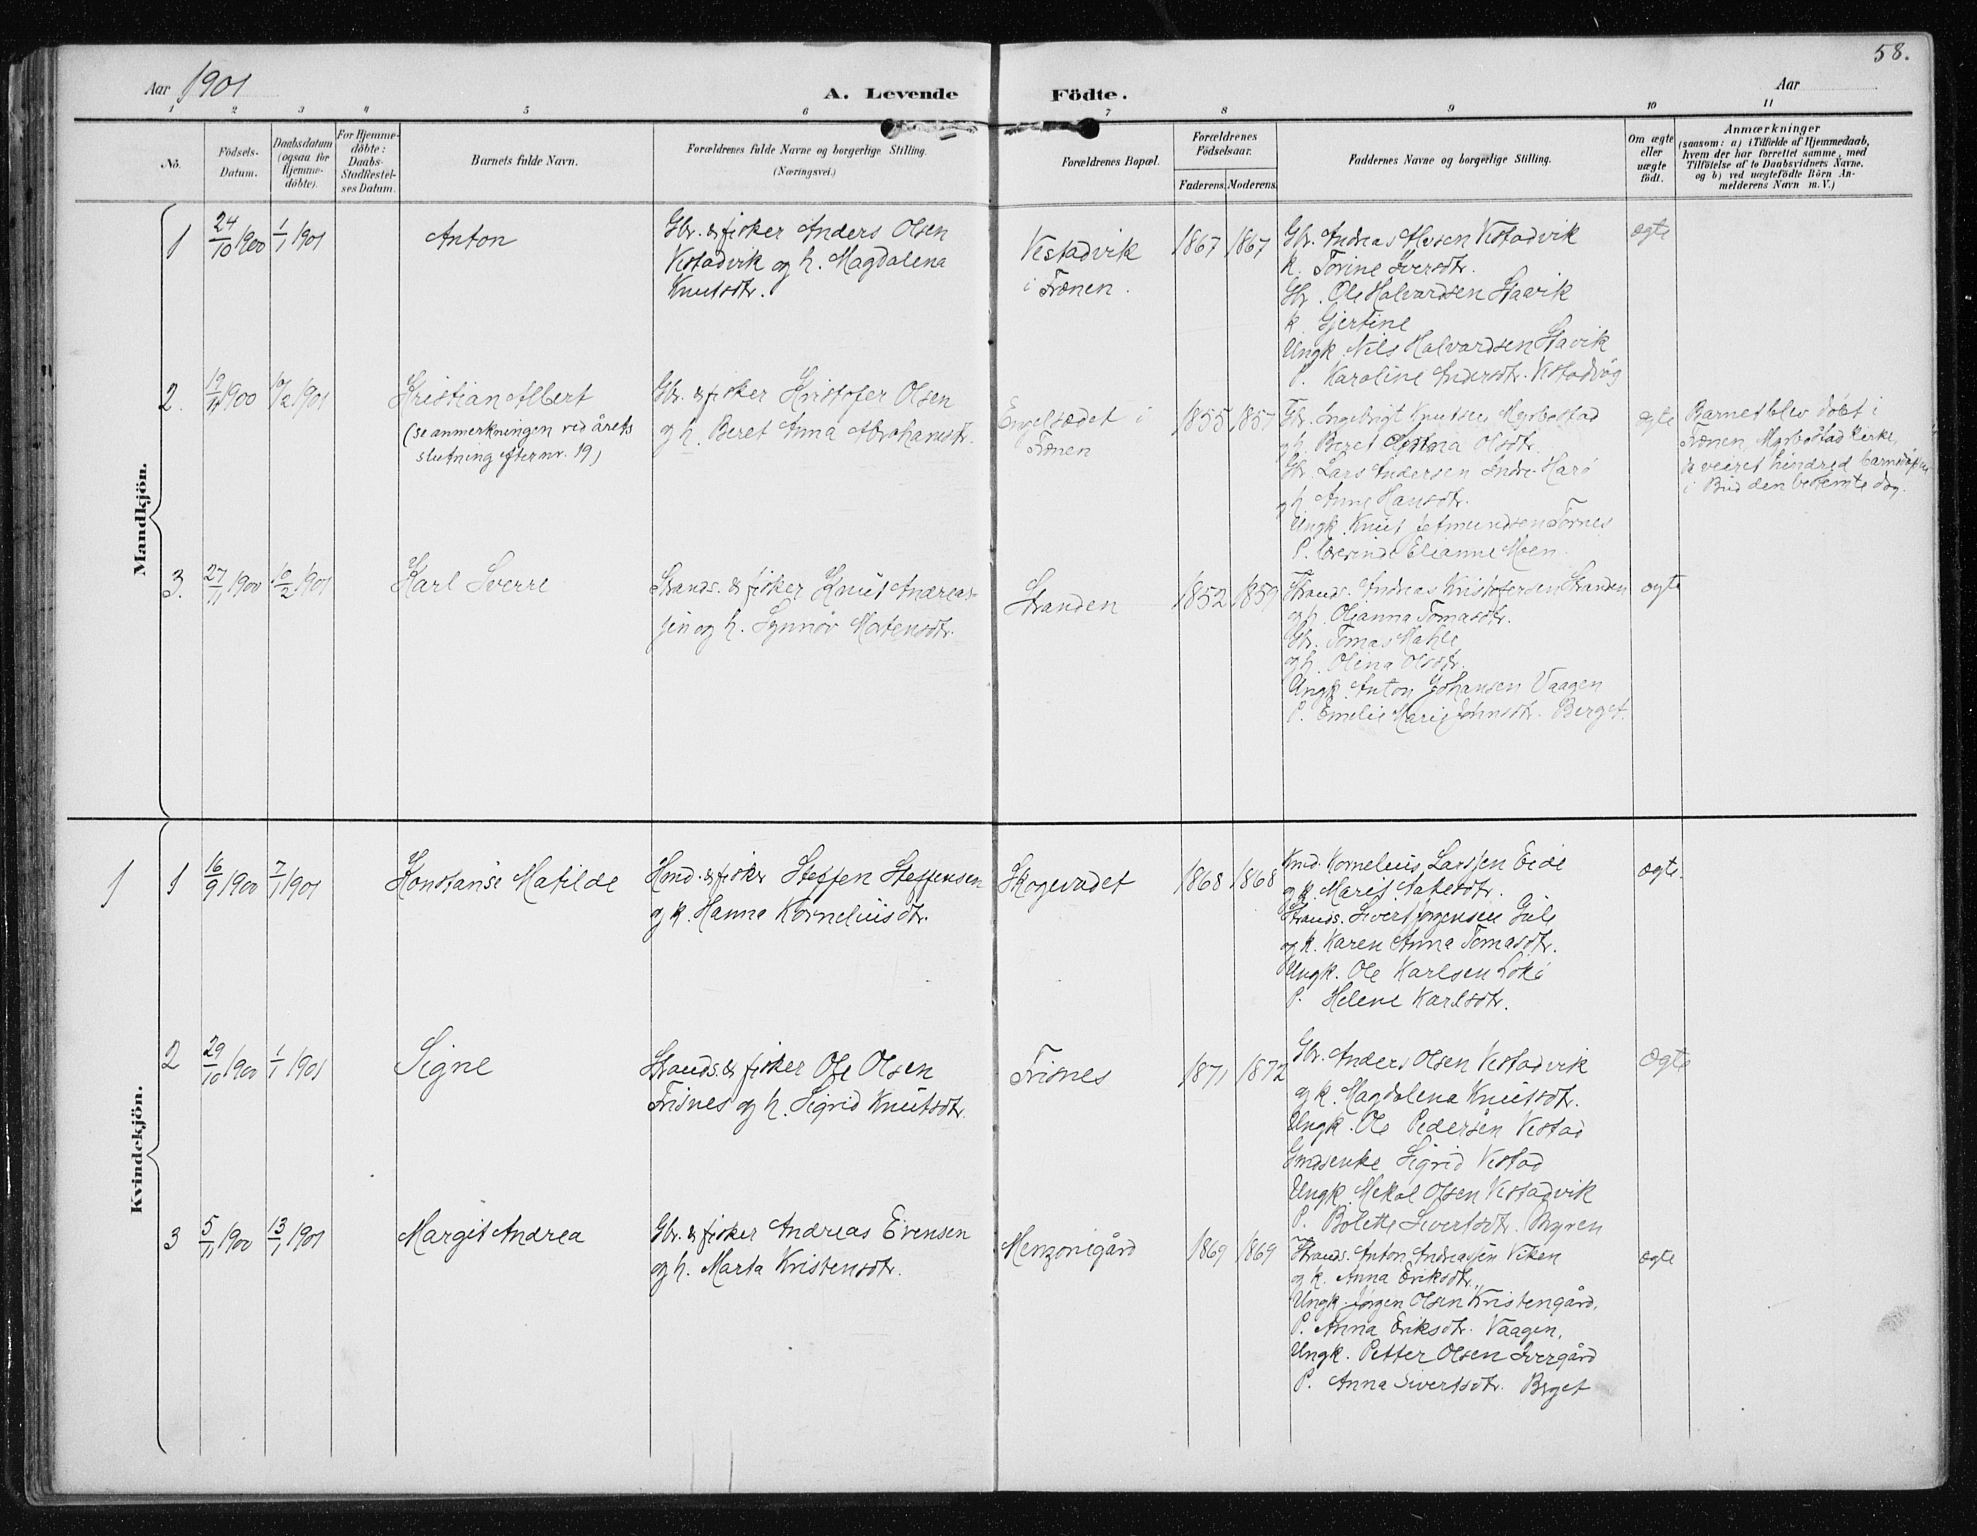 58.
Aar 1901
A. Levende Födte.
Aar
1 2 3 4 5 6 7 8 9 10 11
No.
Födsels-
Datum.
Daabsdatum
(ogsaa for
Hjemme-
döbte).
For Hjemme-
döbte:
Daabs-
Stadfæstel-
ses Datum.
Barnets fulde Navn.
Forældrenes fulde Navne og borgerlige Stilling.
(Næringsvei.)
Forældrenes Bopæl.
Forældrenes
Födselsaar.
Faderens. Moderens.
Faddernes Navne og borgerlige Stilling.
Om ægte
eller
uægte
födt.
Anmærkninger
(saasom: a) i Tilfælde af Hjemmedaab,
hvem der har forrettet samme, med
Tilföielse af to Daabsvidners Navne.
og b) ved uægtefödte Börn An-
melderens Navn m. V.)
Mandkjön.
1
24/10 1900
1/1 1901
Anton
Gbr. & fisker Anders Olsen
Vestadvik og h. Magdalena
Knutsdtr.
Vestadvik
i Frænen.
1867 1867
Gbr. Andreas Olsen Vestadvik
k. Torine Iversdtr.
Gbr. Ole Halvardsen Stavik
k. Gjertine
Ungk. Nils Halvardsen Stavik
P. Karoline Andersdtr.
ægte
2.
12/11 1900
10/2 1901
Kristian Albert
(se anmerkningen ved årets
slutning efter nr. 19)
Gbr. & fisker Kristofer Olsen
og h. Beret Anna Abrahamsdtr.
i
Frænen
1855 1857
Gbr. Ingebrigt Knutsen
og h. Beret Olsdtr.
Gbr. Lars Andersen Indre Harö
og h. Anne Hansdtr.
Ungk. Knut Tornes
P. Elianne Moen.
ægte
Barnet blev döbt i
Frænen, kirke,
da veiret hindred
i Bud den bestemte dag.
3.
27/11 1900
10/2 1901
Karl Sverre
Strands. & fisker Knut Andreas-
sen og h. Synnöv Mortensdtr.
Stranden
1852 1859
Strands. Andreas Kristofersen Stranden
og h. Olianna Tomasdtr.
Gbr. Tomas Male
og h. Olina Olsdtr.
Ungk. Anton Johansen Vaagen
P. Emelie Marie Johnsdtr. Berget.
ægte
Kvindekjön.
1
1
16/9 1900
7/1 1901
Konstanse Matilde
Hmd. & fisker Steffen Steffensen
og k. Hanna Korneliusdtr.
Skogevadet
1868 1868
Hmd. Kornelius Larssen Eide
og k.
Strands. Sivert Jörgensen Gule
og k. Karen Anna Tomasdtr.
Ungk. Ole Karlsen
P. Helene Karlsdtr.
ægte.
2
29/10 1900
1/1 1901
Signe
Strands. & fisker Ole Olsen
Trisnes og h. Sigrid Knutsdtr.
Trisnes
1871 1872
Gbr. Anders Olsen Vestadvik
og k. Magdalena Knutsdtr.
Ungk. Ole Pedersen Vestad
Sigrid Vestad
Ungk. Mekal Olsen Vestadvik
P. Bolette Sivertsdtr. Myren
Ægte
3
5/11 1900
13/1 1901
Margit Andrea
Gbr. & fisker Andreas Evensen
og h. Marta Kristensdtr.
Menzonigård
1869 1869
Strands. Anton Andreassen Viken
og k. Anna Eriksdtr.
Ungk. Jörgen Olsen Kristengård.
P. Anna Eriksdtr. Vaagen.
Ungk. Petter Olsen Ivergård
P. Anna Sivertsdtr. Berget
ægte